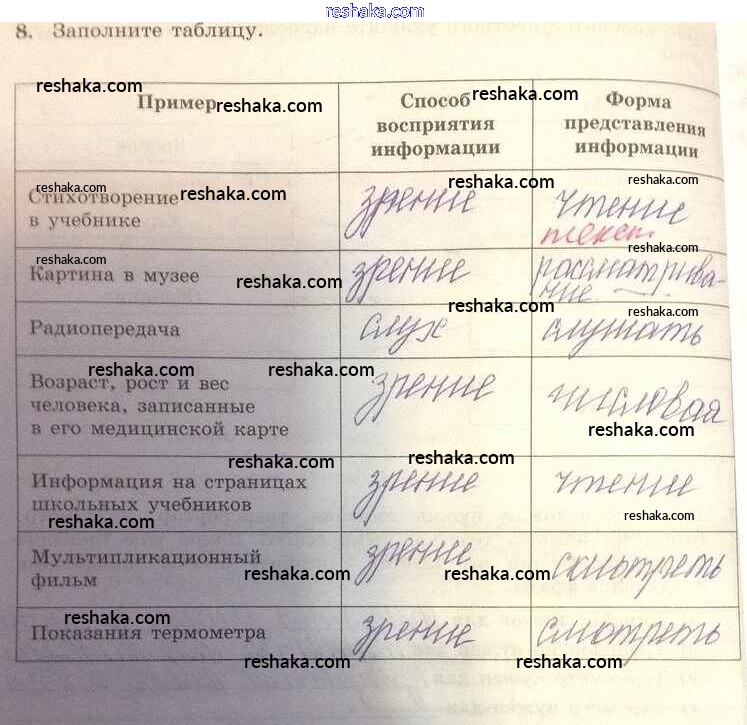 reshaka.com
8. Заполните таблицу.
reshaka.com reshaka.com reshaka.com reshaka.com
Пример
Способ
восприятия
информации
Форма
представления
информации
reshaka.com reshaka.com reshaka.com reshaka.com
Стихотворение
в учебнике
зрение
чтение
текст.
reshaka.com reshaka.com reshaka.com reshaka.com
Картина в музее
зрение
рассматрива-
ние
reshaka.com reshaka.com reshaka.com reshaka.com
Радиопередача
слух
слушать
reshaka.com reshaka.com
Возраст, рост и вес
человека, записанные
в его медицинской карте
зрение
числовая
reshaka.com
reshaka.com reshaka.com
Информация на страницах
школьных учебников
зрение
чтение
reshaka.com reshaka.com
Мультипликационный
фильм
зрение
смотреть
reshaka.com reshaka.com reshaka.com
reshaka.com
Показания термометра
зрение
смотреть
reshaka.com reshaka.com